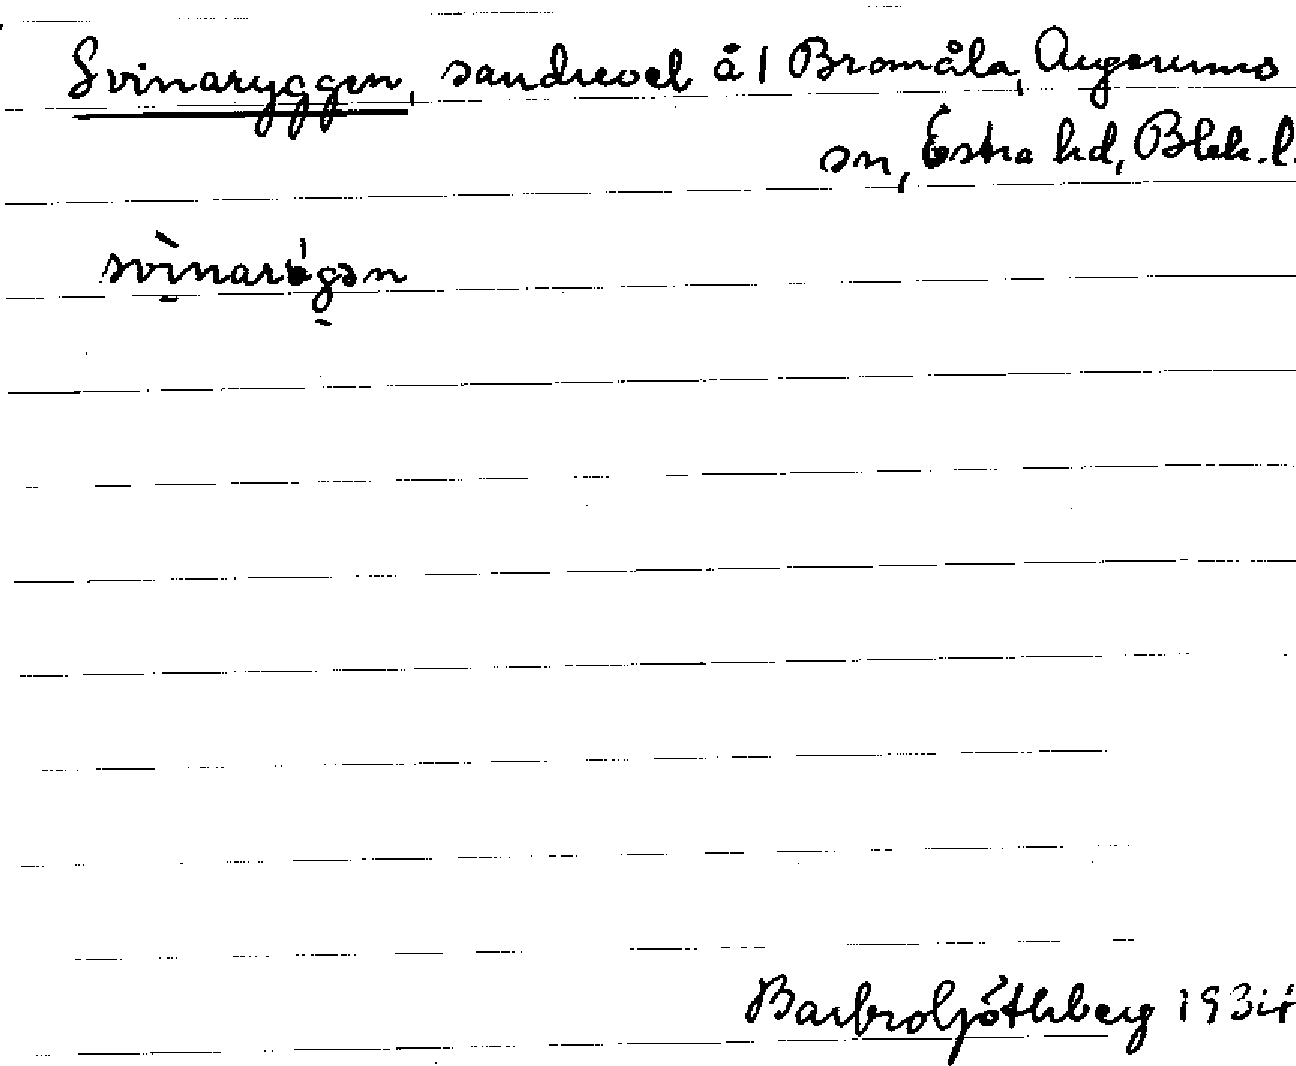 Svinaryggen, sandrevel å 1 Bromåla, Augerums
sn, Östra hd, Blek. l.
Barbro Göthberg 1934